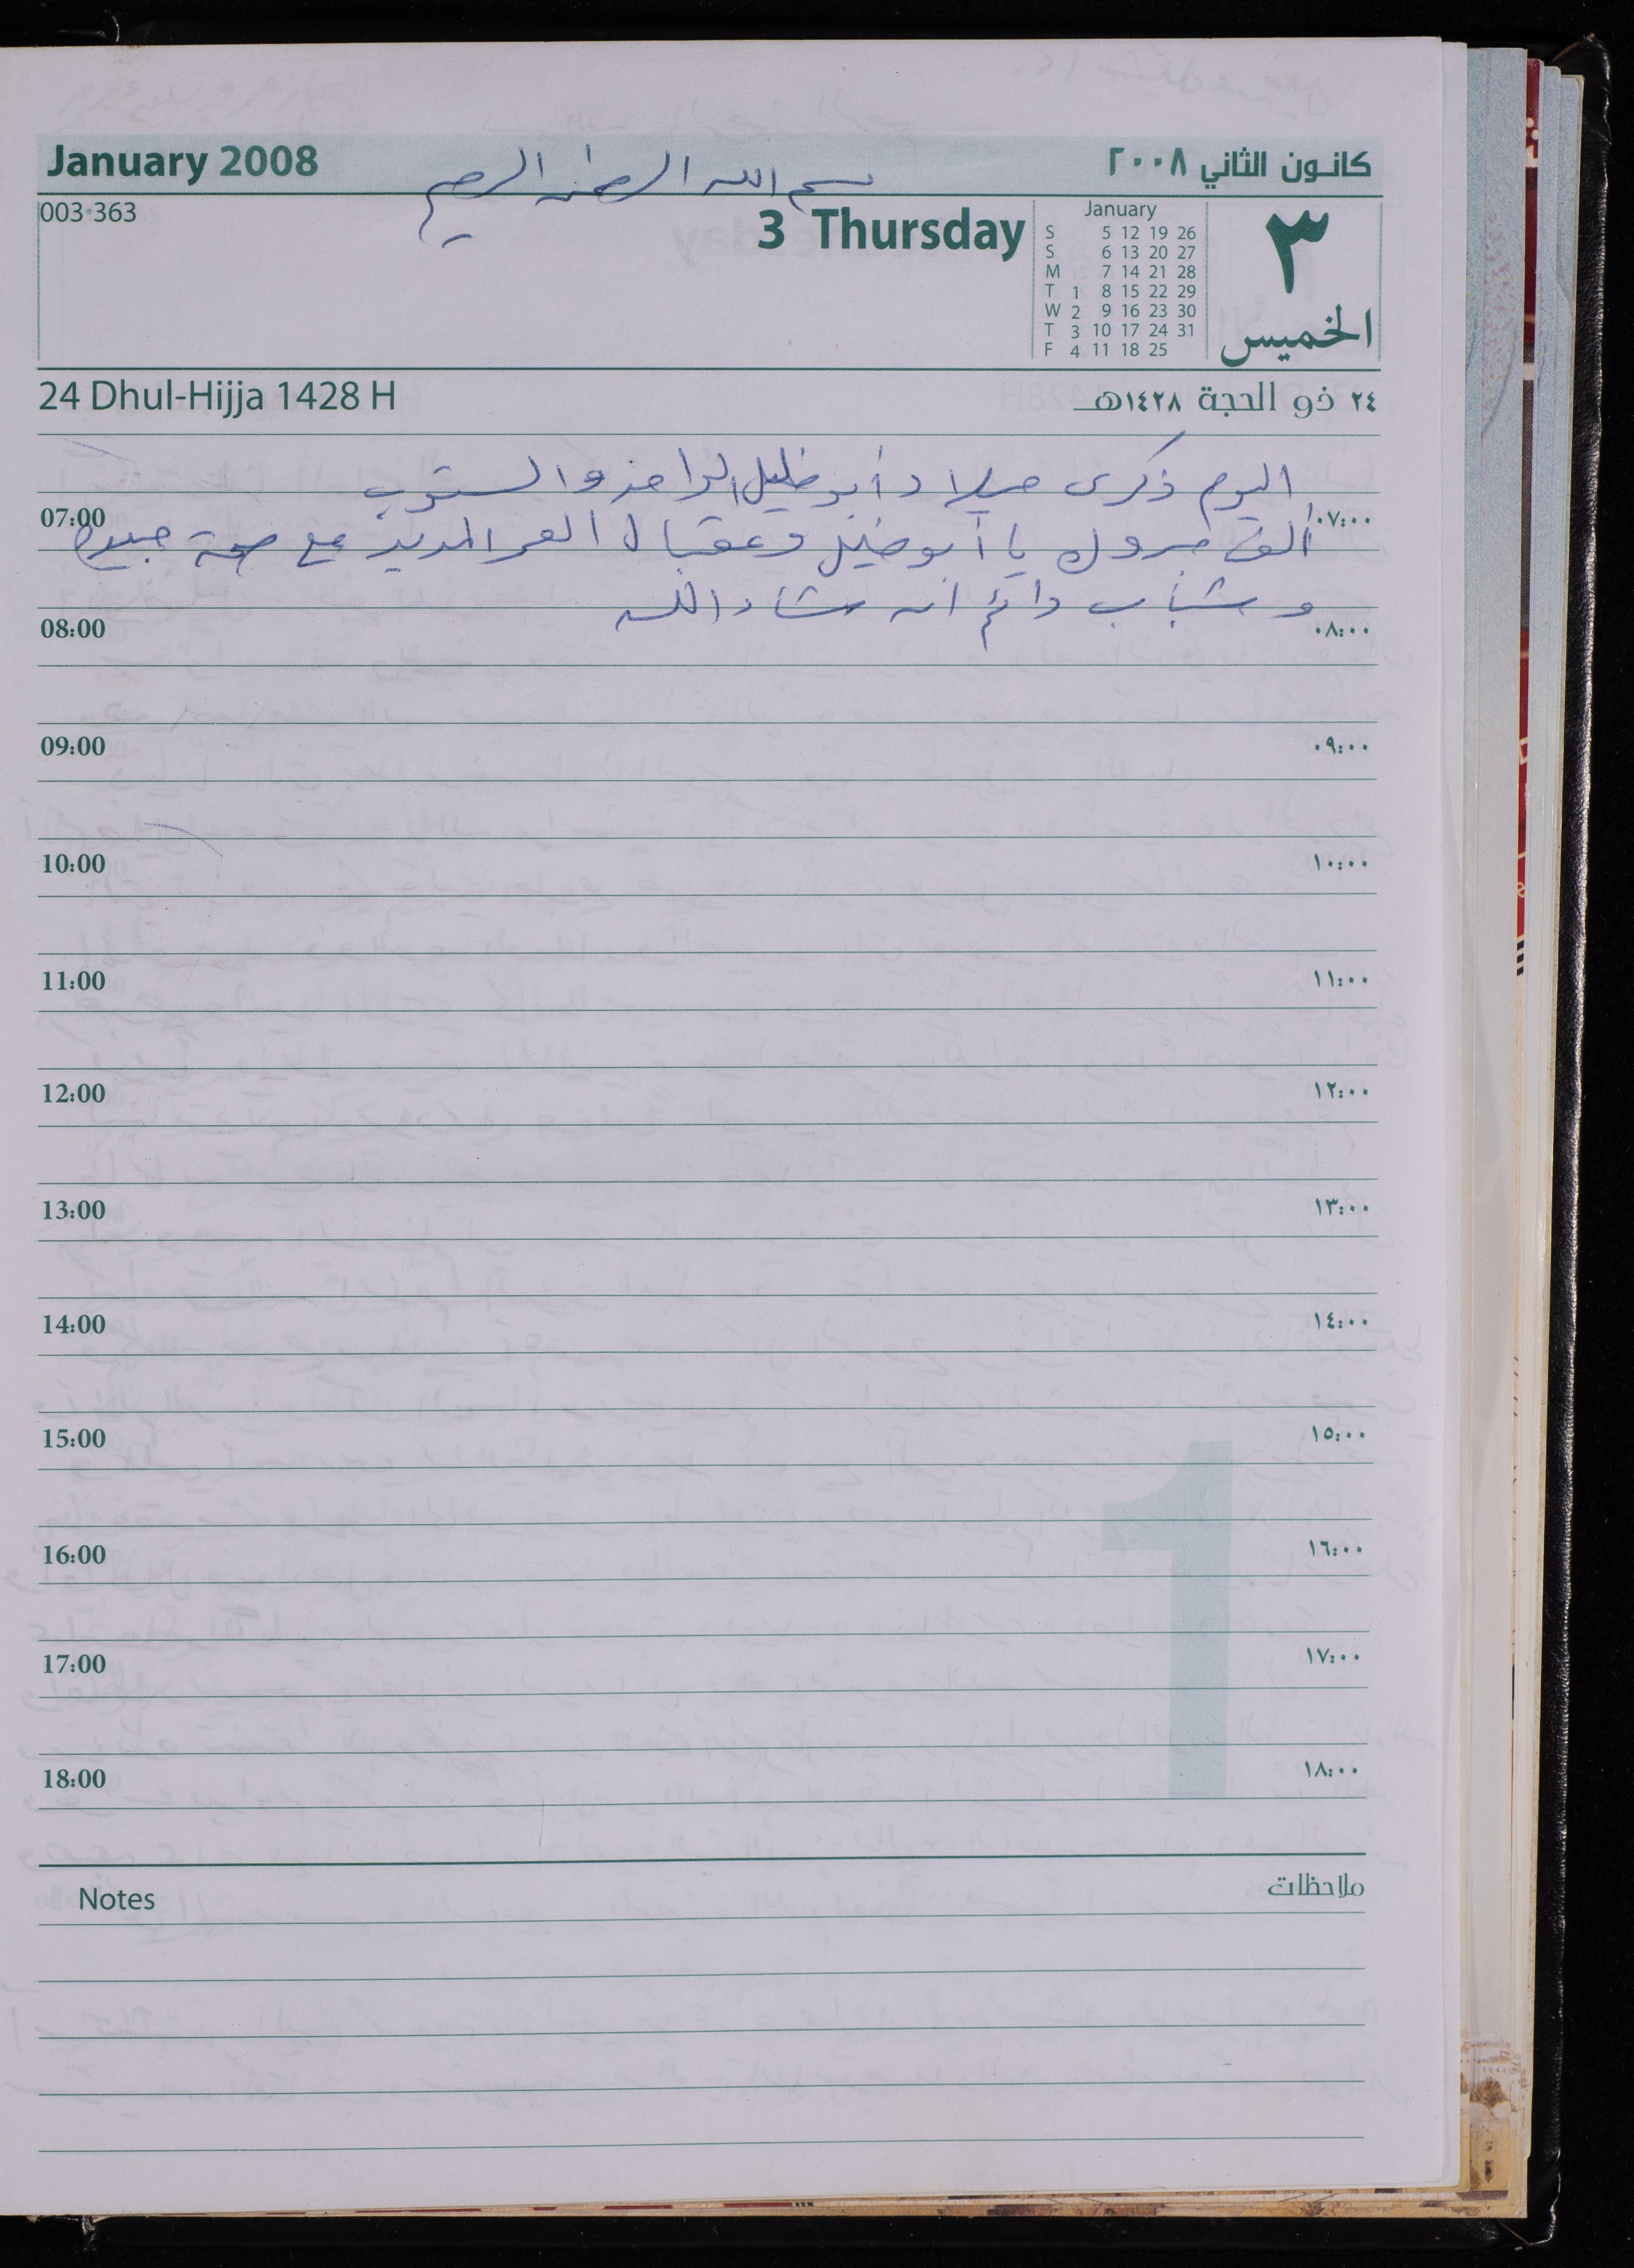 January 2008
كانون الثاني ٢٠٠٨
بسم الله الرحمن الرحيم
003-363
3 Thursday
January
S 5 12 19 26
S 6 13 20 27
M 7 14 21 28
T 1 8 15 22 29
W 2 9 16 23 30
T 3 10 17 24 31
F 4 11 18 25
٣
الخميس
24 Dhul-Hijja 1428 H
٢٤ ذو الحجة ١٤٢٨هـ
اليوم ذكرى ميلاد أبو خليل الواحد والستون
07:00 ٠٧:٠٠
ألف مبروك يا أبو خليل وعقبال العمر المديد مع صحة جيدة
وشباب دائم ان شاء الله
08:00 ٠٨:٠٠
09:00 ٠٩:٠٠
10:00 ١٠:٠٠
11:00 ١١:٠٠
12:00 ١٢:٠٠
13:00 ١٣:٠٠
14:00 ١٤:٠٠
15:00 ١٥:٠٠
16:00 ١٦:٠٠
17:00 ١٧:٠٠
18:00 ١٨:٠٠
1
Notes
ملاحظات